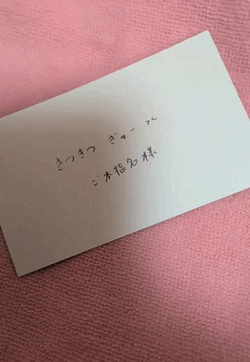 きつきつ ぎゅーっく
ご本指名様